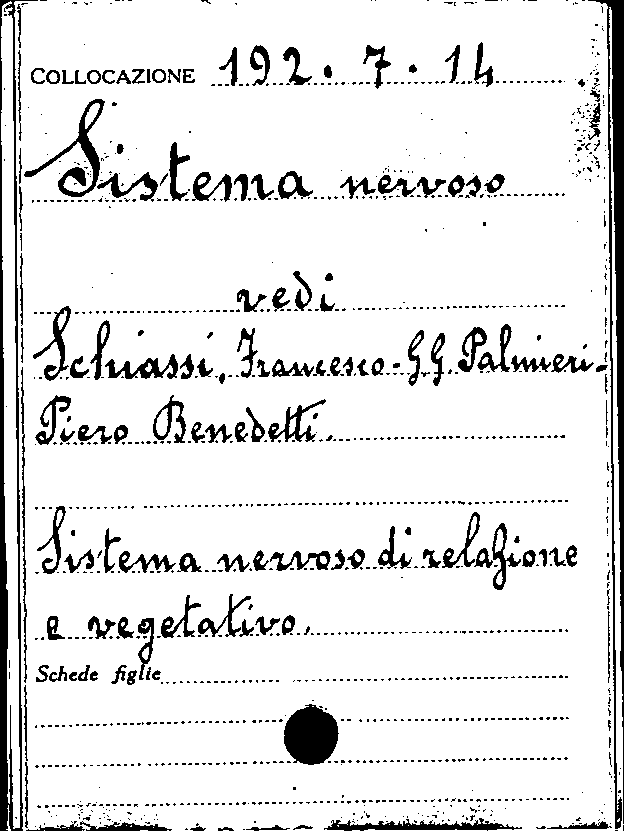 COLLOCAZIONE 192. 7. 14
Sistema nervoso
vedi
Schiassi, Francesco - G.G. Palmieri -
Piero Benedetti.
Sistema nervoso di relazione
e vegetativo.
Schede figlie